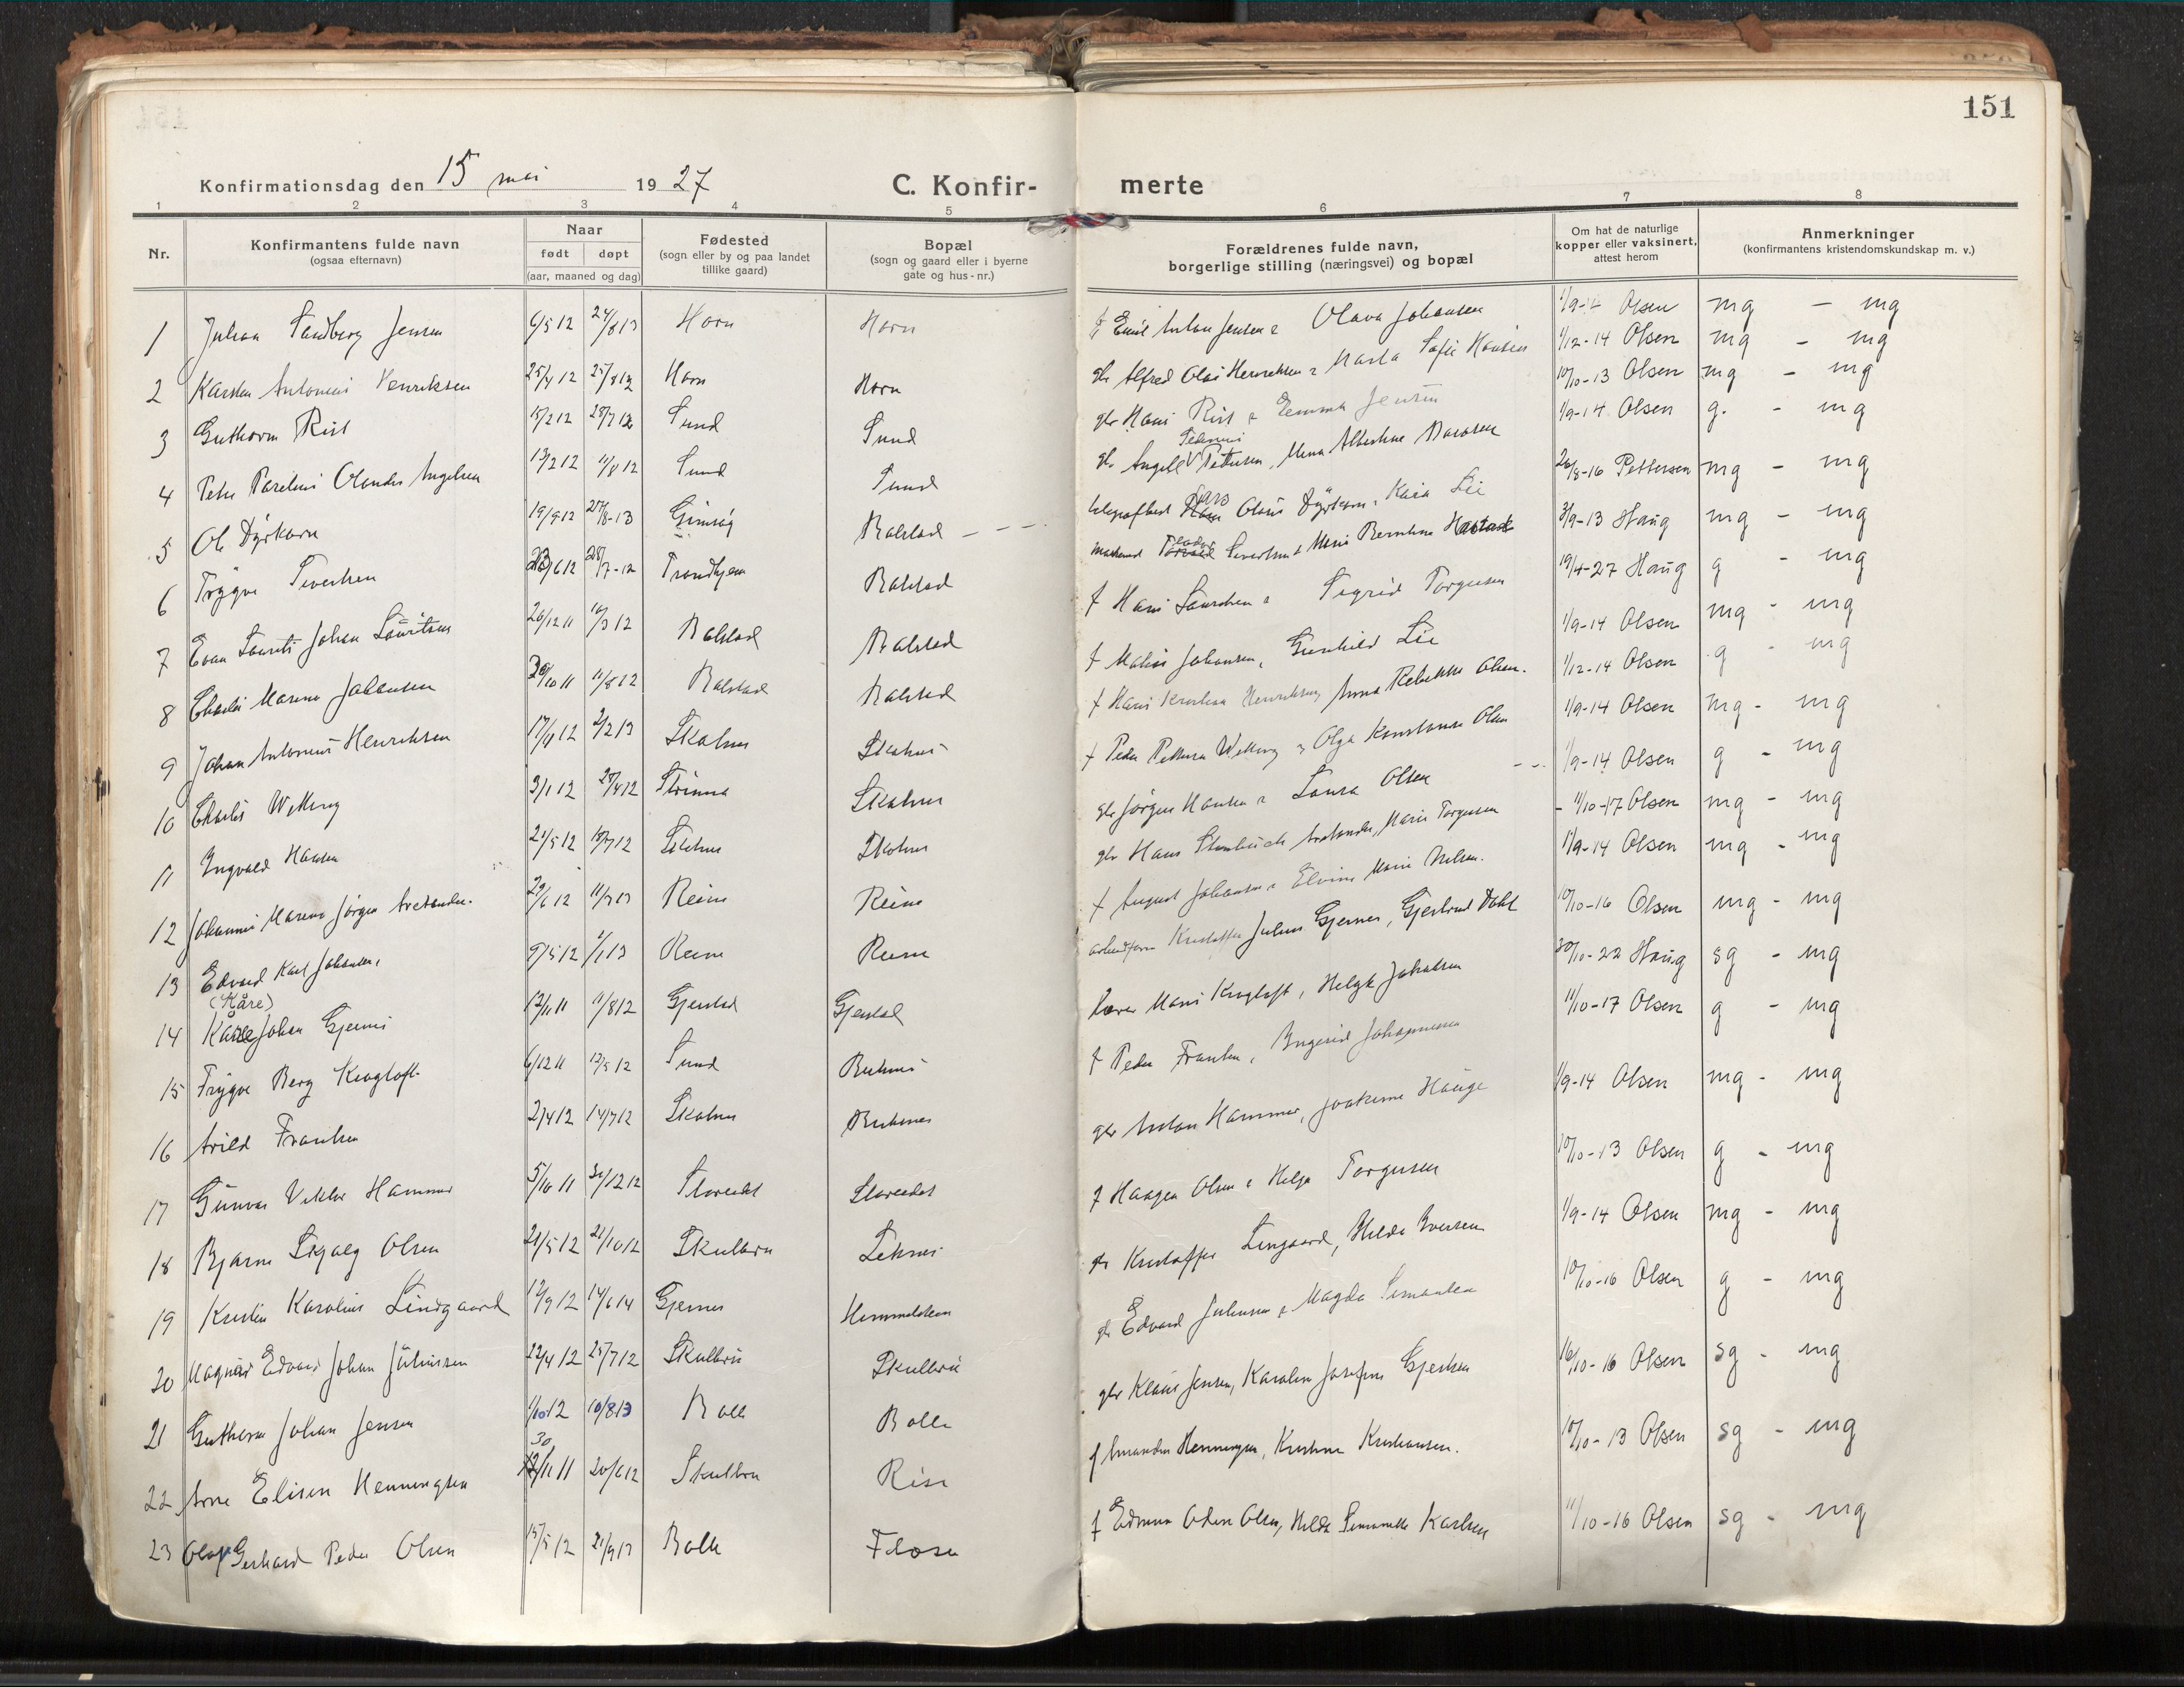 151
Konfirmationsdag den 15 mai 1927 C. Konfir- merte
1 2 3 4 5 6 7 8
Nr. Konfirmantens fulde navn (ogsaa efternavn) Naar født døpt (aar, maaned og dag) Fødested (sogn eller by og paa landet tillike gaard) Bopæl (sogn og gaard eller i byerne gate og hus-nr.) Forældrenes fulde navn, borgerlige stilling (næringsvei) og bopæl Om hat de naturlige kopper eller vaksinert, attest herom Anmerkninger (konfirmantens kristendomskundskap m. v.)
1 Johan Sandberg Jensen 6/5 12 24/8 13 Horn Horn f Emil Anton Jensen & Olava Johansen 1/9-14 Olsen mg - mg
2 Karsten Antonius Henriksen 25/4 12 25/8 12 Horn Horn gbr Alfred Olai Henriksen & Marta Sofie Hansen 1/12-14 Olsen mg - mg
3 Guthorm Rist 15/2 12 28/7 12 Sund Sund gbr Hans Rist & Emma Jensen 10/10-13 Olsen mg - mg
4 Peter Parelius Olander Ingelsen 13/2 12 11/8 12 Sund Sund gbr Ingell Pettersen, Mena Albertine 1/9-14 Olsen g. - mg
5 Ole Dyrkorn 19/9 12 27/8-13 Gimsøy Balstad - - telegrafbest Lars Olaus Dyrkorn & Kaia Lie 26/8-16 Pettersen mg - mg
6 Trygve Sivertsen 23/6 12 28/7-12 Trondhjem Balstad Sivertsen & Marie Berntine 3/9-13 Haug mg - mg
7 Evan Laurits Johan Lauritsen 26/12 11 10/3 12 Balstad Balstad f Hans Lauritsen & Sigrid Torgersen 19/4-27 Haug g - mg
8 Charles Marenus Johansen 30/10 11 11/8 12 Balstad Balstad f Johansen, Gunhild Lie 1/9-14 Olsen mg - mg
9 Johan Antonius Henriksen 17/4 12 2/2 13 Skotnes Skotnes f Hans Henriksen, Anna Rebekka Olsen. 1/12-14 Olsen g - mg
10 Charles Wilking 3/1 12 28/4 12 Skotnes f Peder Pettersen & Olga Konstanse Olsen 1/9-14 Olsen mg - mg
11 Ingvald Hansen 21/5 12 Skotnes Skotnes gbr Jørgen Hansen & Laura Olsen - - 1/9-14 Olsen g - mg
12 Johannes Marenus Jørgen Aretander. 29/6 12 11/3 13 Reine Reine gbr Hans Steenbuch Aretander, Marie Torgersen - 11/10-17 Olsen mg - mg
13 Edvard Karl Johansen 9/5 12 1/1 13 Reine Reine f August Johansen & Elvine Marie Nilsen. 1/9-14 Olsen mg - mg
(Kåre)
14 Kaare Johan Gjernes 12/11 11 11/8 12 Gjerstad Gjerstad Kristoffer Julius Gjernes, Gjertrud Dahl 10/10-16 Olsen mg - mg
15 Trygve Berg Krogtoft 6/12 11 12/5 12 Sund Buksnes lærer Krogtoft, Helga Jakobsen 30/10-22 Haug sg - mg
16 Arild Frantsen 2/4 12 14/7 12 Skotnes Buksnes f Peder Frantsen, Ingerid Johannessen 11/10-17 Olsen g - mg
17 Gunvar Viktor Hammer 5/10 11 31/12 12 Storeidet Storeidet gbr Anton Hammer, Joakime Hauge 1/9-14 Olsen mg - mg
18 Bjarne Sigvald Olsen 21/5 12 21/10 12 Skulbru Leknes f Haagen Olsen & Helga Torgersen 10/10-13 Olsen g - mg
19 Kristen Karolius Lindgaard 12/9 12 14/6 14 Gjernes Himmelsteen gbr Kristoffer Lingaard, Hilda Iversen 1/9-14 Olsen mg - mg
20 Magnus Edvard Johan Juliussen 22/4 12 25/7 12 Skulbru Skulbru gbr Edvard Juliussen & Magda Simonsen 10/10-16 Olsen g - mg
21 Guthorm Johan Jensen 1/10 12 10/8 13 Bolle Bolle gbr Klaus Jensen, Karoline Josefine Gjertsen 16/10-16 Olsen sg - mg
22 Arne Elisen Henningsen 30/11 11 20/6 12 Skulbru Rise f Amandus Henningsen, Kristine Kristiansen. 10/10-13 Olsen sg - mg
23 Olaf Gerhard Peder Olsen 15/5 12 21/9 13 Bolle Flosen f Edmun Odin Olsen, Hilda Karlsen 11/10-16 Olsen sg - mg